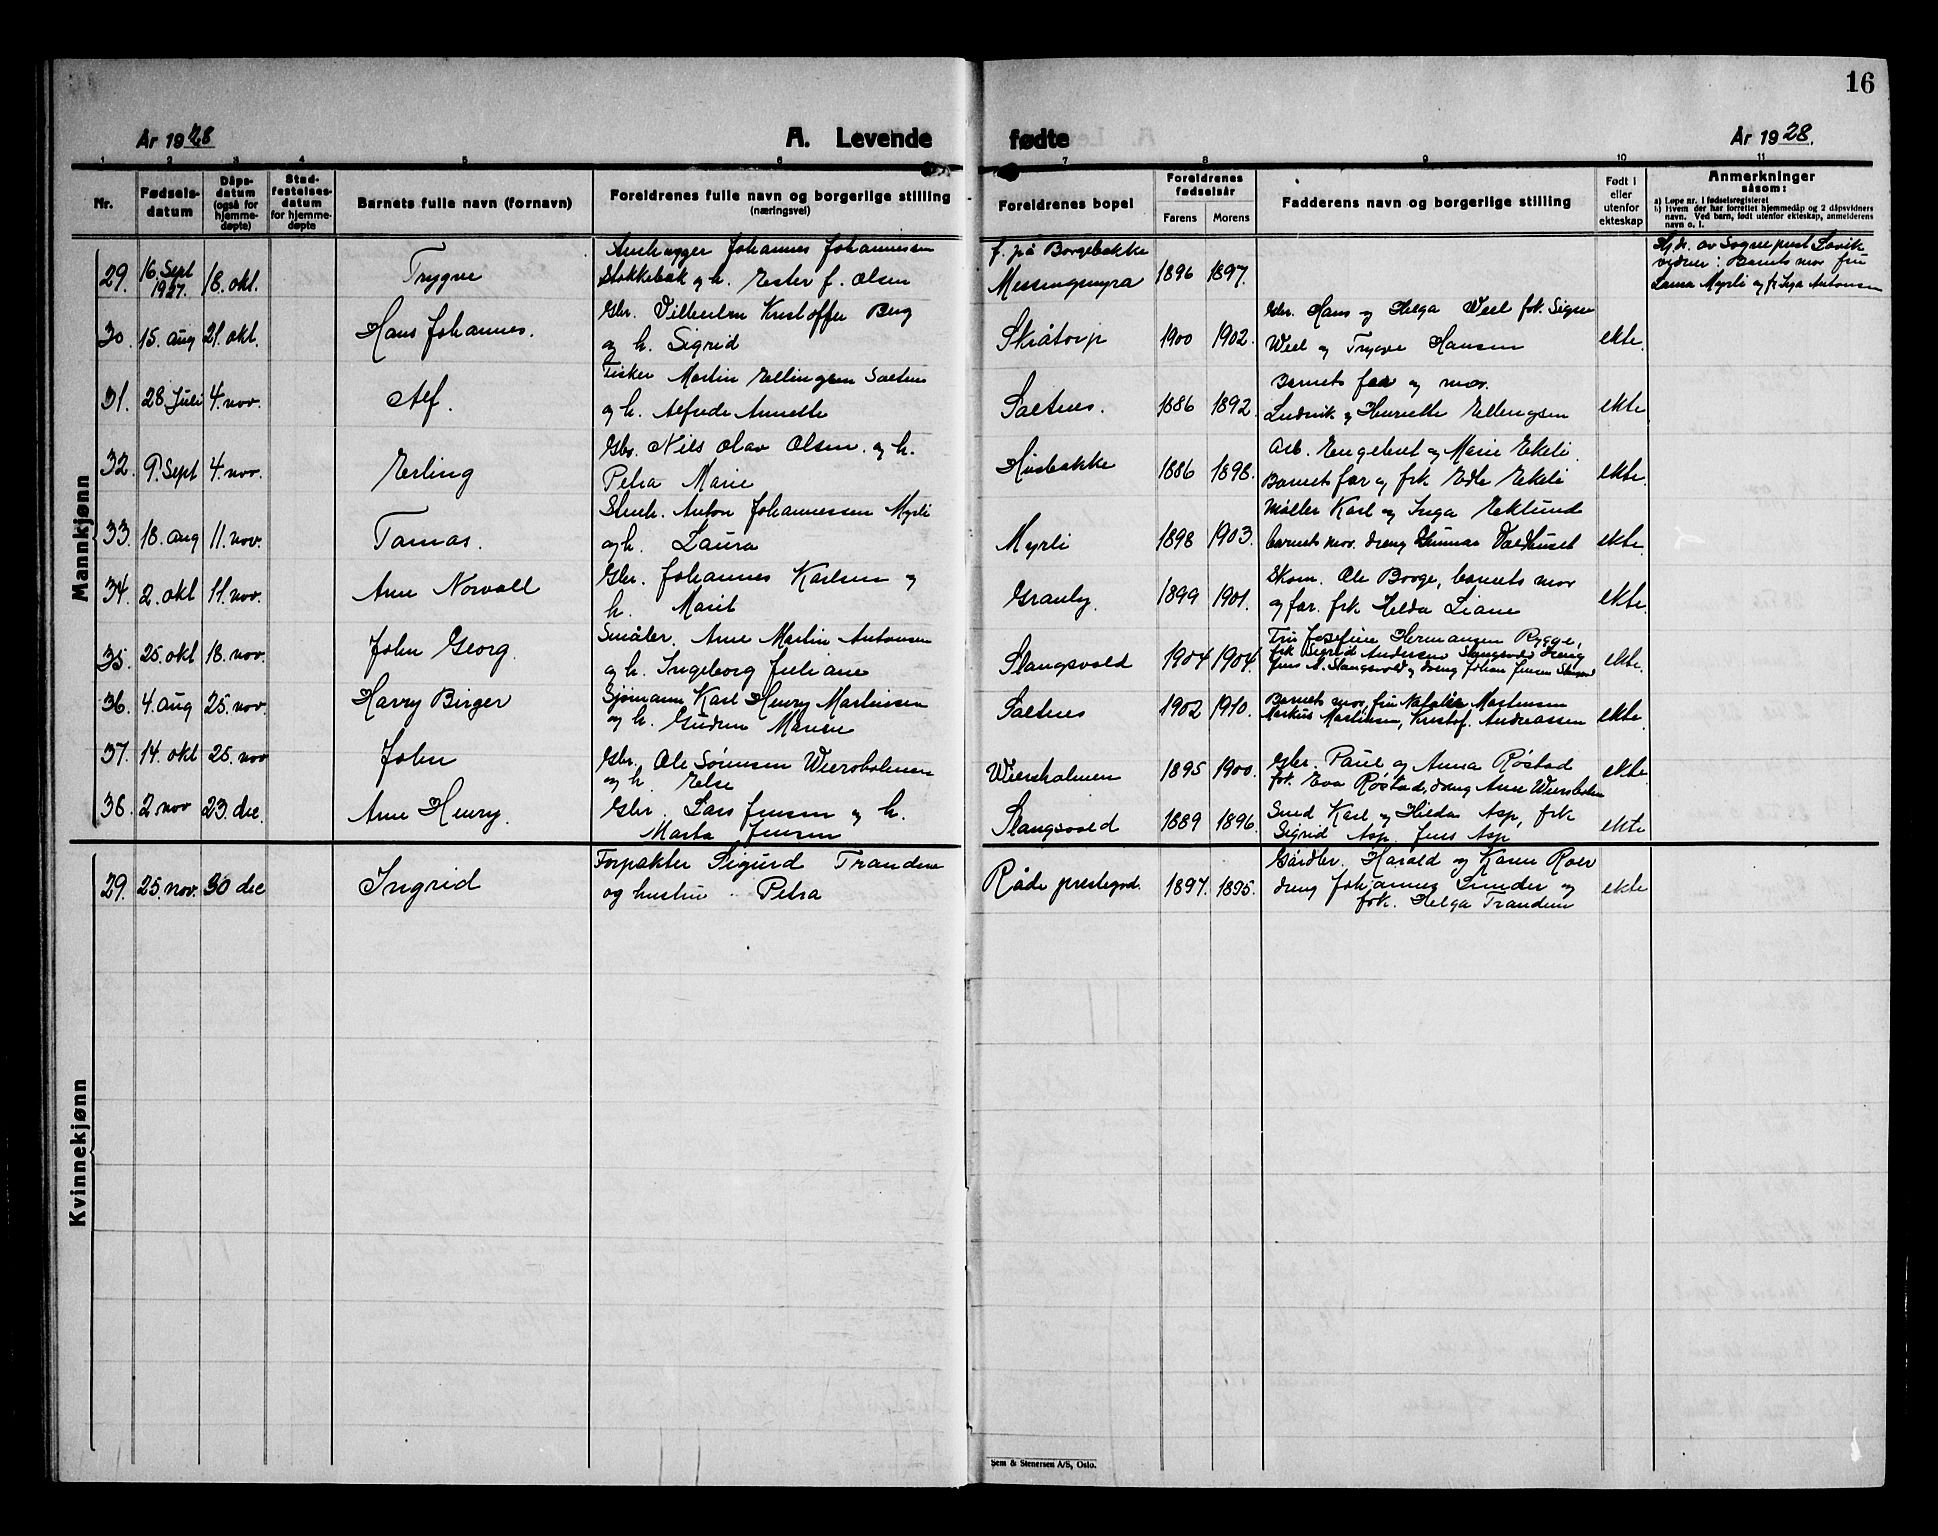 16
År 1928
A. Levende
fødte
År 1928.
1 2 3 4 5 6 7 8 9 10 11
Nr.
Fødsels-
datum
Dåps-
datum
(også for
hjemme-
døpte)
Stad-
festelses-
datum
for hjemme-
døpte
Barnets fulle navn (fornavn)
Foreldrenes fulle navn og borgerlige stilling
(næringsvei)
Foreldrenes bopel
Foreldrenes
fødselsår
Farens Morens
Fadderens navn og borgerlige stilling
Født i
eller
utenfor
ekteskap
Anmerkninger
såsom:
a) Løpe nr. i fødselsregisteret
b) Hvem der har forrettet hjemmedåp og 2 dåpsvidners
navn. Ved barn, født utenfor ekteskap, anmelderens
navn o. l.
Mankjønn
29. 16. Sept 1927. 18. okt. Trygve
Johannes Johannessen
Stokkebæk og h. Ester f. Olsen
f. på Borgebakke
Messingmyra 1896 1897.
Hj.d. av Sogneprest Løvik
vidner: Barnets mor fru
Laura Myrli og fr Inga Antonsen
30. 15. aug 21. okt. Hans Johannes.
Gbr. Vilhelm Kristoffer Berg
og h. Sigrid
Skråtorp 1900 1902.
Gbr. Hans og Helga Weel frk. Signe
Weel og Trygve Hansen
ekte.
31. 28 Juli 4. nov. Alf.
Fisker Martin Ellingsen Saltnes
og h. Alfrede Annette
Saltnes. 1886 1892.
Barnets far og mor.
Ludvik og Henriette Ellingsen
ekte
32. 9. Sept 4. nov. Erling
Gbr. Nils Olav Olsen og h.
Petra Marie
Husbakke 1886 1898.
Arb. Engebret og Marie Ekeli.
Barnets far og frk Edle Ekeli
ekte.
33. 18. aug 11. nov. Tomas.
Stenh. Anton Johannessen Myrli
og h. Laura
Myrli 1898 1903.
Møller Karl og Inga Eklund
barnets mor. dreng Gunnar Valdhuset
ekte.
34. 2. okt 11. nov. Arne Norvall
Gbr. Johannes Karlsen og
h. Marit
Granly. 1899 1901.
Skom. Ole Borge, barnets mor
og far. frk Helda Liane
ekte.
35. 25. okt 18. nov. John Georg.
Småbr. Arne Martin Antonsen
og h. Ingeborg Juliane
Slangsvold 1904 1904.
Fru Josefine Hermansen Rygge,
frk Sigrid Andersen Slangsvold, dreng
Jens A. Slangsvold og dreng Johan Jensen
ekte.
36. 4. aug 25. nov. Harry Birger
Sjømann Karl Henry Martinsen
og h. Gudrun Marie
Saltnes 1902 1910.
Barnets mor, fru Natalie Martinsen
Markus Martinsen, Kristof. Andreassen
ekte.
37. 14. okt 25. nov John
Gbr. Ole Sørensen Wiersholmen
og h. Else
Wiersholmen 1895 1900.
Gbr. Paul og Anna Røstad
frk. Eva Røstad, dreng Arne Wiersholm
ekte
38. 2. nov 23. dec. Arne Henry.
Gbr. Lars Jensen og h.
Marta Jensen
Slangsvold 1889 1896.
Smed Karl og Hilda Asp, frk
Sigrid Asp. Jens Asp
ekte
Kvinnekjønn
29. 25. nov. 30 dec Ingrid
Forpakter Sigurd Trandem
og hustru Petra
Råde prestegrd. 1897. 1895.
Gårdbr. Harald og Karen Roer
dreng Johannes Sunder og
frk. Helga Trandem
ekte
Sem & Stenersen A/S, Oslo.